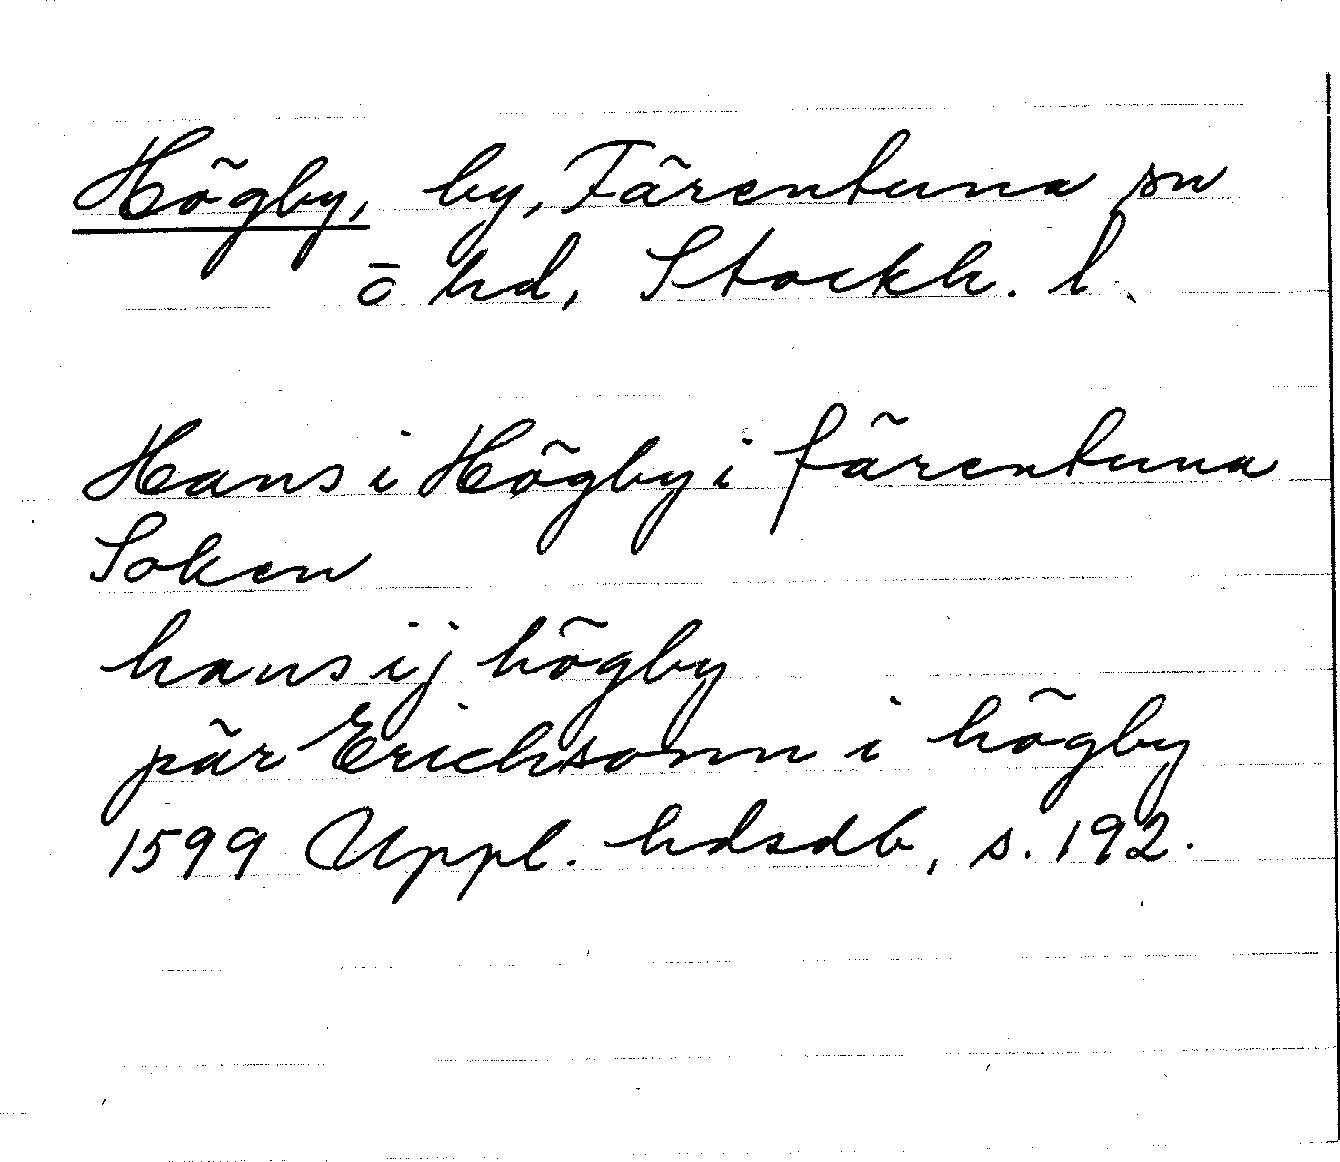 Högby, by, Färentuna sn
o hd, Stockh. l.
Hans i Högby i färentuna
Soken
hans ij högby
pär Erichsonn i högby
1599 Uppl. hdsdb, s. 192.